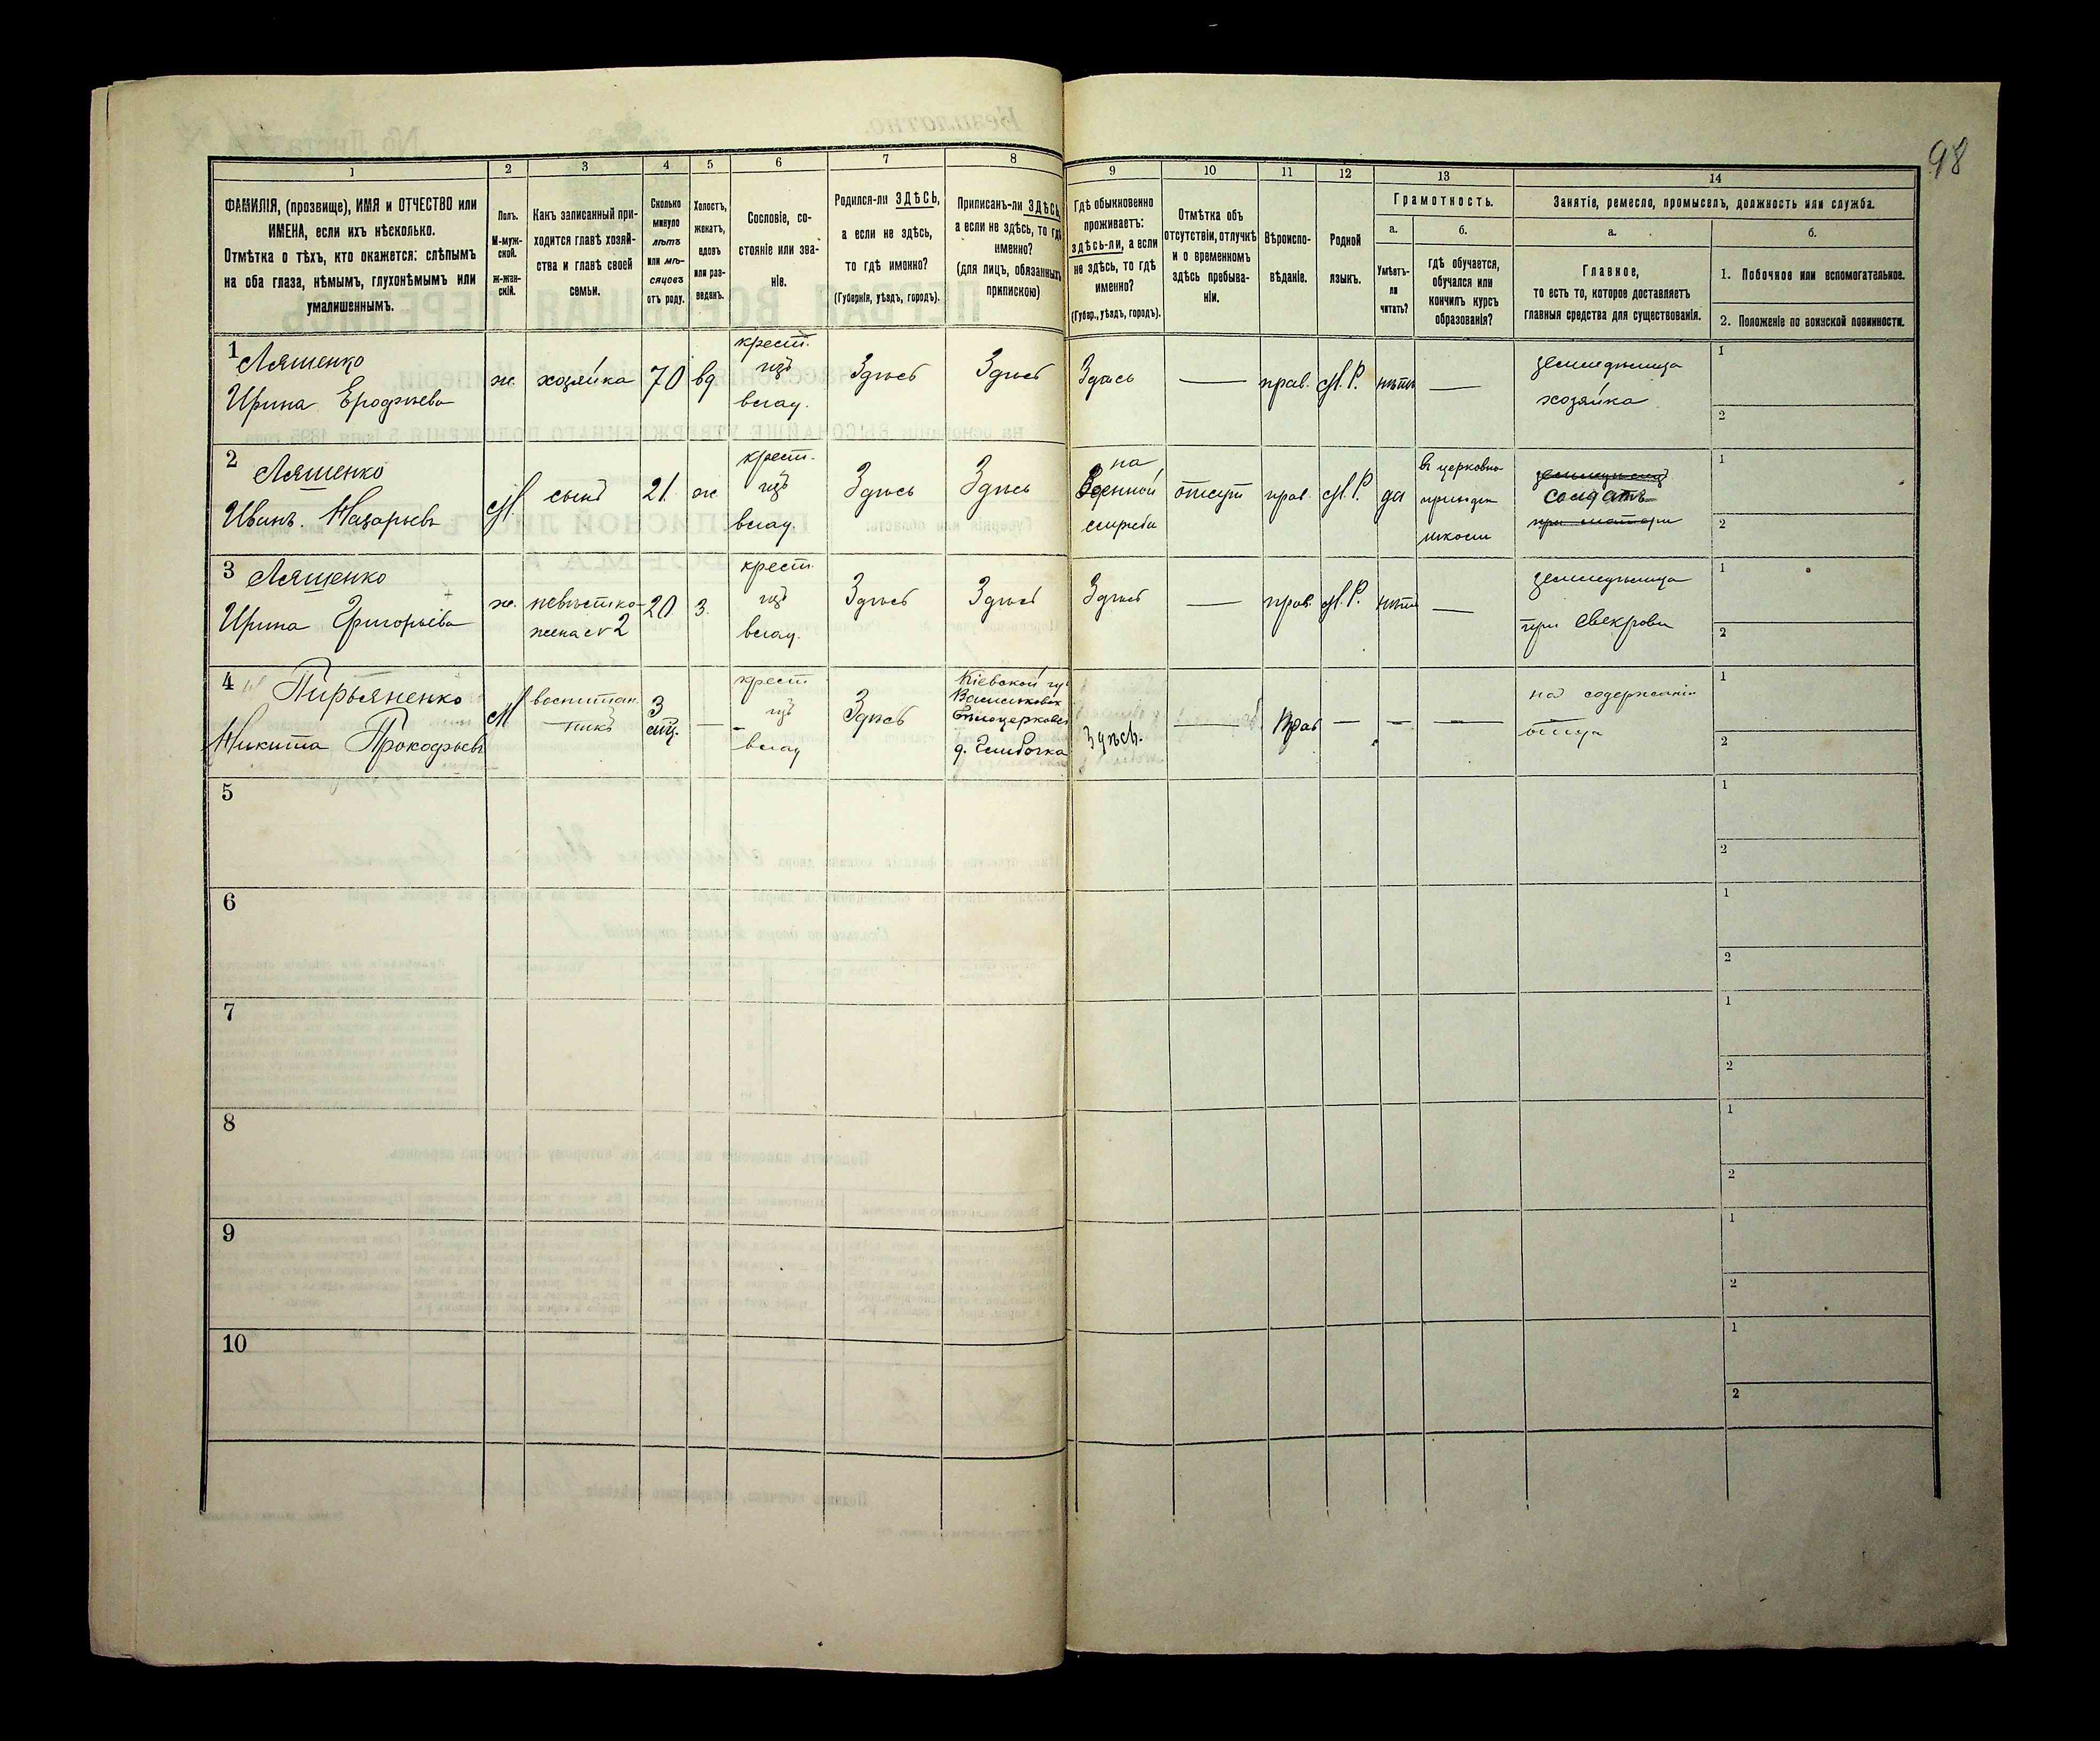 98
1
2
3
4
5
6
7
8
9
10
11
12
13
14
ФАМИЛІЯ, (прозвище), ИМЯ и ОТЧЕСТВО или
ИМЕНА, если ихъ нѣсколько.
Отмѣтка о тѣхъ, кто окажется: слѣпымъ
на оба глаза, нѣмымъ, глухонѣмымъ или
умалишеннымъ.
Полъ.
М-муж-
ской.
Ж-жен-
скій.
Какъ записанный при-
ходится главѣ хозяй-
ства и главѣ своей
семьи.
Сколько
минуло
лѣтъ
или мѣ-
сяцевъ
отъ роду.
Холостъ,
женатъ,
вдовъ
или раз-
веденъ.
Сословіе, со-
стояніе или зва-
ніе.
Родился-ли ЗДѢСЬ,
а если не здѣсь,
то гдѣ именно?
(Губернія, уѣздъ, городъ).
Приписанъ-ли ЗДѢСЬ,
а если не здѣсь, то гдѣ
именно?
(для лицъ, обязанныхъ
припискою)
Гдѣ обыкновенно
проживаетъ:
здѣсь-ли, а если
не здѣсь, то гдѣ
именно?
(Губер., уѣздъ, городъ).
Отмѣтка объ
отсутствіи, отлучкѣ
и о временномъ
здѣсь пребыва-
ніи.
Вѣроиспо-
вѣданіе.
Родной
языкъ.
Грамотность.
а.
Умѣетъ-
ли
читать?
б.
гдѣ обучается,
обучался или
кончилъ курсъ
образованія?
Занятіе, ремесло, промыселъ, должность или служба.
а.
Главное,
то есть то, которое доставляетъ
главныя средства для существованія.
б.
1. Побочное или вспомогательное.
2. Положеніе по воинской повинности.
1
Ляшенко
Ирина Ерофѣева
ж.
хозяйка
70
вд.
крест.
изъ
влад.
Здѣсь
Здѣсь
Здѣсь
—
прав.
М.Р.
нѣтъ
—
земледѣлица
хозяйка
1
2
2
Ляшенко
Иванъ Назарьевъ
М.
сынъ
21.
ж
крест.
изъ
влад.
Здѣсь
Здѣсь
на
Военной
службѣ
отсут
прав.
М.Р.
да
въ церковно
приходск
школѣ
солдатъ
при матери
1
2
3
Ляшенко
Ирина Григорьева
ж.
невѣстка
жена № 2
20
з.
крест.
изъ
влад.
Здѣсь
Здѣсь
Здѣсь
—
прав.
М.Р.
нѣтъ
—
земледѣлица
при свекрови
1
2
4
Пирьяненко
Никита Прокофьевъ
М
воспитан
никъ
3
мц.
—
крест
изъ
влад
Здѣсь
Кіевской гу
Васильковск
Бѣлоцерковс
д. Глибочка
Здѣсь.
—
Прав
—
—
—
на содержаніи
отца
1
2
5
1
2
6
1
2
7
1
2
8
1
2
9
1
2
10
1
2